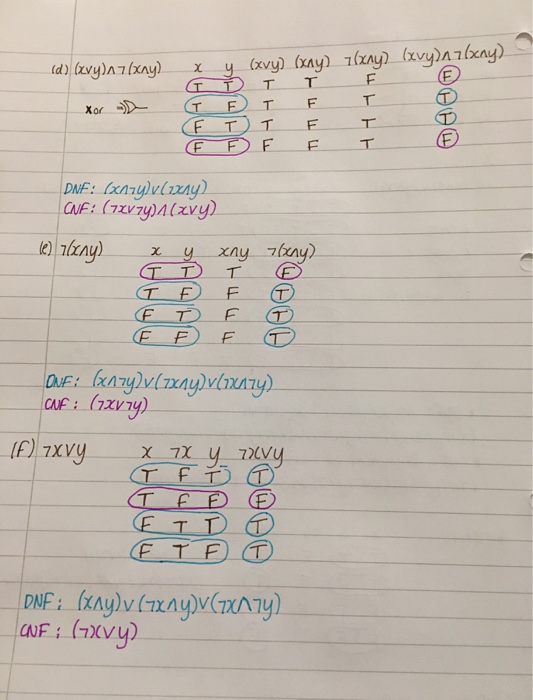 (d) (x∨y)∧¬(x∧y) x y (x∨y) (x∧y) ¬(x∧y) (x∨y)∧¬(x∧y)
T T T T F F
Xor T F T F T T
F T T F T T
F F F F T F
DNF: (x∧¬y)∨(¬x∧y)
CNF: (¬x∨¬y)∧(x∨y)
(e) ¬(x∧y) x y x∧y ¬(x∧y)
T T T F
T F F T
F T F T
F F F T
DNF: (x∧¬y)∨(¬x∧y)∨(¬x∧¬y)
CNF: (¬x∨¬y)
(f) ¬x∨y x ¬x y ¬x∨y
T F T T
T F F F
F T T T
F T F T
DNF: (x∧y)∨(¬x∧y)∨(¬x∧¬y)
CNF: (¬x∨y)